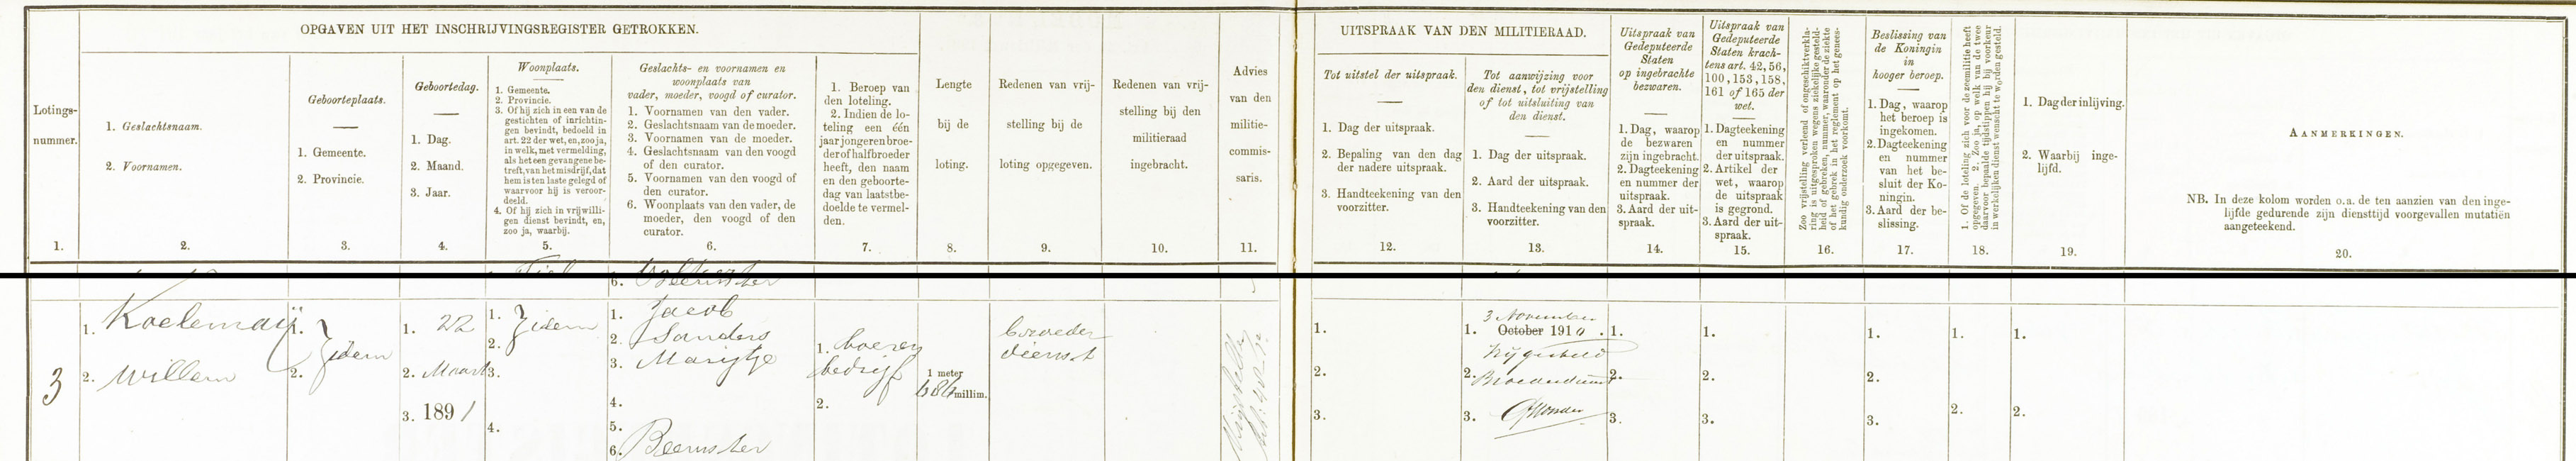 OPGAVEN UIT HET INSCHRIJVINGSREGISTER GETROKKEN.
Lotings-
nummer.
1.
1. Geslachtsnaam.
2. Voornamen.
2.
Geboorteplaats.
1. Gemeente.
2. Provincie.
3.
Geboortedag.
1. Dag.
2. Maand.
3. Jaar.
4.
Woonplaats.
1. Gemeente.
2. Provincie.
3. Of hij zich in een van de
gestichten of inrichtin-
gen bevindt, bedoeld in
art. 22 der wet, en, zoo ja,
in welk, met vermelding,
als het een gevangene be-
treft, van het misdrijf, dat
hem is ten laste gelegd of
waarvoor hij is veroor-
deeld.
4. Of hij zich in vrijwilli-
gen dienst bevindt, en,
zoo ja, waarbij.
5.
Geslachts- en voornamen en
woonplaats van
vader, moeder, voogd of curator.
1. Voornamen van den vader.
2. Geslachtsnaam van de moeder.
3. Voornamen van de moeder.
4. Geslachtsnaam van den voogd
of den curator.
5. Voornamen van den voogd of
den curator.
6. Woonplaats van den vader, de
moeder, den voogd of den
curator.
6.
1. Beroep van
den loteling.
2. Indien de lo-
teling een één
jaar jongeren broe-
der of halfbroeder
heeft, den naam
en den geboorte-
dag van laatstbe-
doelde te vermel-
den.
7.
Lengte
bij de
loting.
8.
Redenen van vrij-
stelling bij de
loting opgegeven.
9.
Redenen van vrij-
stelling bij den
militieraad
ingebracht.
10.
Advies
van den
militie-
commis-
saris.
11.
UITSPRAAK VAN DEN MILITIERAAD.
Tot uitstel der uitspraak.
1. Dag der uitspraak.
2. Bepaling van den dag
der nadere uitspraak.
3. Handteekening van den
voorzitter.
12.
Tot aanwijzing voor
den dienst, tot vrijstelling
of tot uitsluiting van
den dienst.
1. Dag der uitspraak.
2. Aard der uitspraak.
3. Handteekening van den
voorzitter.
13.
Uitspraak van
Gedeputeerde
Staten
op ingebrachte
bezwaren.
1. Dag, waarop
de bezwaren
zijn ingebracht.
2. Dagteekening
en nummer der
uitspraak.
3. Aard der uit-
spraak.
14.
Uitspraak van
Gedeputeerde
Staten krach-
tens art. 42, 56,
100, 153, 158,
161 of 165 der
wet.
1. Dagteekening
en nummer
der uitspraak.
2. Artikel der
wet, waarop
de uitspraak
is gegrond.
3. Aard der uit-
spraak.
15.
Zoo vrijstelling verleend of ongeschiktverkla-
ring is uitgesproken wegens ziekelijke gesteld-
heid of gebreken, nummer, waaronder de ziekte
of het gebrek in het reglement op het genees-
kundig onderzoek voorkomt.
16.
Beslissing van
de Koningin
in
hooger beroep.
1. Dag, waarop
het beroep is
ingekomen.
2. Dagteekening
en nummer
van het be-
sluit der Ko-
ningin.
3. Aard der be-
slissing.
17.
1. Of de loteling zich voor de zeemilitie heeft
opgegeven. 2. Zoo ja, op welk van de twee
daarvoor bepaalde tijdstippen hij bij voorkeur
in werkelijken dienst wenscht te worden gesteld.
18.
1. Dag der inlijving.
2. Waarbij inge-
lijfd.
19.
AANMERKINGEN.
NB. In deze kolom worden o.a. de ten aanzien van den inge-
lijfde gedurende zijn diensttijd voorgevallen mutatiën
aangeteekend.
20.
6. Beemster
3
1. Koelemaij
2. Willem
1.
2. idem
1. 22
2. Maart
3. 1891
1. idem
2.
3.
4.
1. Jacob
2. Sanders
3. Marijtje
4.
5.
6. Beemster
1. boeren
bedrijf
2.
1 meter
684 millim.
broeder
dienst
1.
2.
3.
3 November
1. October 1910.
Vrijgesteld
2. Broederdienst
3.
1.
2.
3.
1.
2.
3.
1.
2.
3.
1.
2.
1.
2.